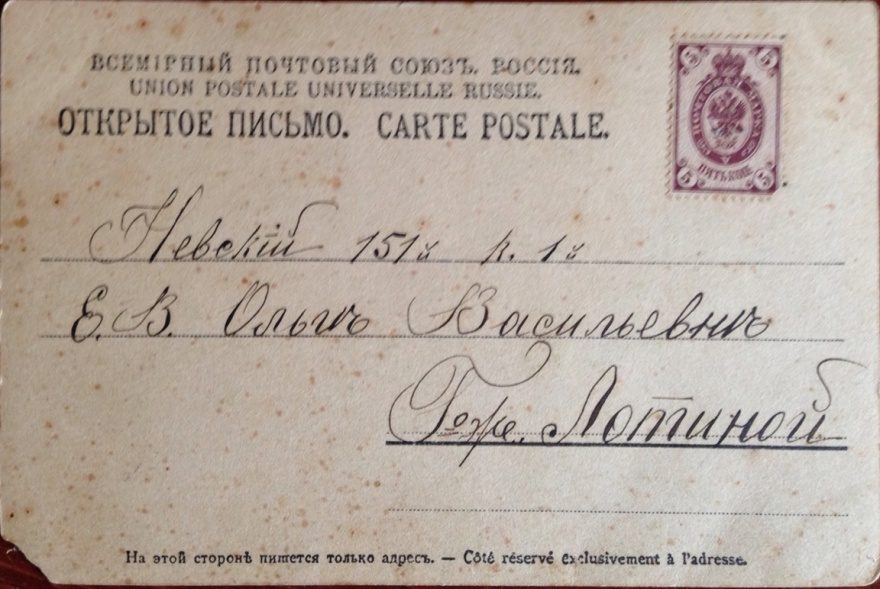 ВСЕМІРНЫЙ ПОЧТОВЫЙ СОЮЗЪ. РОССІЯ.
UNION POSTALE UNIVERSELLE RUSSIE.
ОТКРЫТОЕ ПИСЬМО. CARTE POSTALE.
5 5
ПОЧТОВАЯ МАРКА
ПЯТЬ КОП.
5 5
Невскій 151й к. 1й
Е. В. Ольгѣ Васильевнѣ
Гож. Лотиной
На этой сторонѣ пишется только адресъ. — Côté réservé exclusivement à l'adresse.